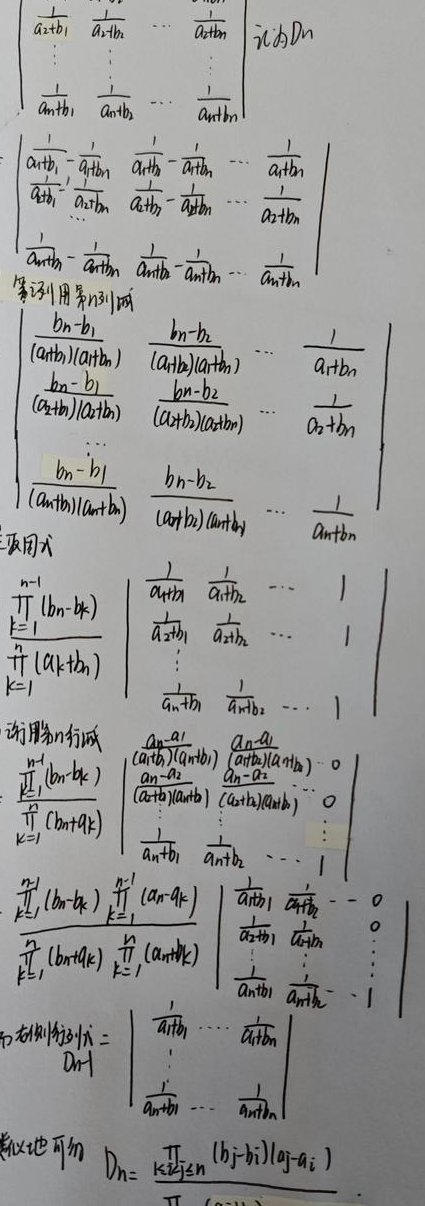 1/(a2+b1) 1/(a2+b2) … 1/(a2+bn) 记为Dn
⋮ ⋮ ⋮
1/(an+b1) 1/(an+b2) … 1/(an+bn)
1/(a1+b1) - 1/(a1+bn) 1/(a1+b2) - 1/(a1+bn) … 1/(a1+bn)
1/(a2+b1) - 1/(a2+bn) 1/(a2+b2) - 1/(a2+bn) … 1/(a2+bn)
…
1/(an+b1) - 1/(an+bn) 1/(an+b2) - 1/(an+bn) … 1/(an+bn)
列用第n列减
(bn-b1)/((a1+b1)(a1+bn)) (bn-b2)/((a1+b2)(a1+bn)) … 1/(a1+bn)
(bn-b1)/((a2+b1)(a2+bn)) (bn-b2)/((a2+b2)(a2+bn)) … 1/(a2+bn)
…
(bn-b1)/((an+b1)(an+bn)) (bn-b2)/((an+b2)(an+bn)) … 1/(an+bn)
取因式
∏_{k=1}^{n-1}(bn-bk) / ∏_{k=1}^{n}(ak+bn) 1/(a1+b1) 1/(a1+b2) … 1
1/(a2+b1) 1/(a2+b2) … 1
⋮
1/(an+b1) 1/(an+b2) … 1
行用第n行减
∏_{k=1}^{n-1}(bn-bk) / ∏_{k=1}^{n}(bn+ak) (an-a1)/((a1+b1)(an+b1)) (an-a1)/((a1+b2)(an+b2)) … 0
(an-a2)/((a2+b1)(an+b1)) (an-a2)/((a2+b2)(an+b2)) … 0
⋮ ⋮ ⋮
1/(an+b1) 1/(an+b2) … 1
∏_{k=1}^{n-1}(bn-bk) ∏_{k=1}^{n-1}(an-ak) / ∏_{k=1}^{n}(bn+ak) ∏_{k=1}^{n}(an+bk) 1/(a1+b1) 1/(a1+b2) … 0
1/(a2+b1) 1/(a2+b2) 0
⋮ ⋮ ⋮
1/(an+b1) 1/(an+b2) … 1
右侧行列式 = 1/(a1+b1) … 1/(a1+bn)
Dn-1 ⋮
1/(an+b1) … 1/(an+bn)
类似地可知 Dn = ∏_{1≤i<j≤n}(bj-bi)(aj-ai)